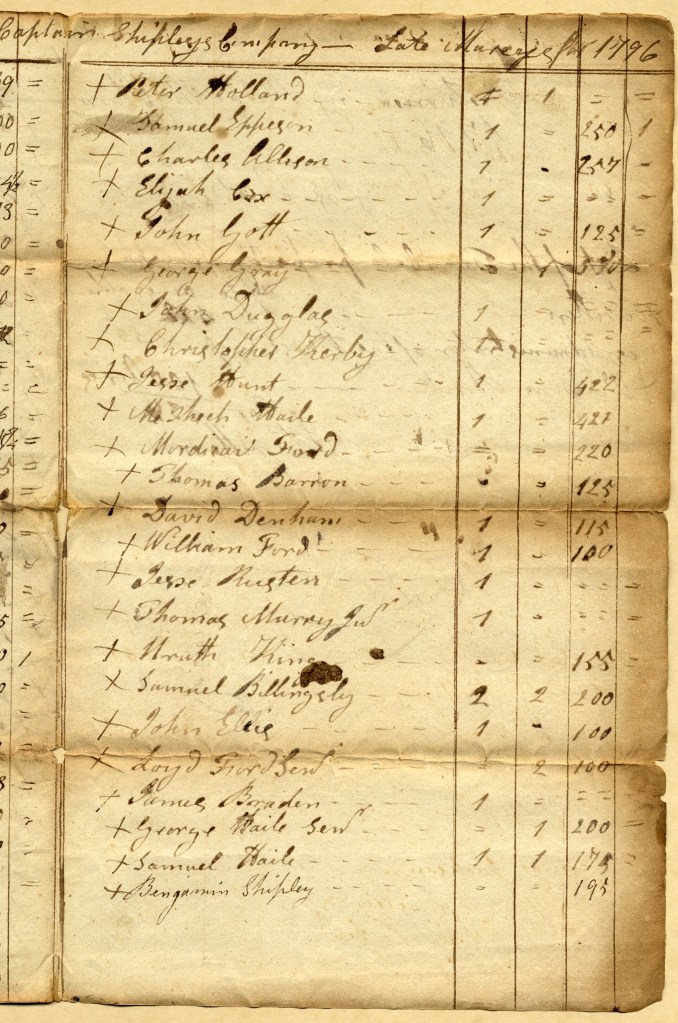 Captain Shipleys Company — Late Murreys for 1796
+ Peter Holland - - - 4 1 = =
+ Samuel Eppeson 1 = 250 1
+ Charles Allison - - - 1 - 257 -
+ Elijah Cox - - - 1 = = = =
+ John Gott - - - 1 = 125 =
+ George Gray - - - 1
+ John Dugglas - - - 1 - = = =
+ Christopher Kerby - 1 - = = =
+ Jesse Hunt - - - 1 = 422
+ Meshech Haile - - - 1 = 421
+ Mordicai Ford - - - = = 220
+ Thomas Barron - - - = 125
+ David Denham - - - 1 = 115
+ William Ford - - - 1 - 100
+ Jesse Husten - - - 1 = = = =
+ Thomas Murry Jur - - 1 = = = =
+ Uruth King - - = 155 =
+ Samuel Billingsly 2 2 200
+ John Ellis - - - 1 - 100
+ Loyd Ford Senr - - - = 2 100
+ James Braden - - - 1 = = = =
+ George Haile Senr - - - = 1 200 =
+ Samuel Haile - - - 1 1 175 =
+ Benjamin Shipley - - - = = 195